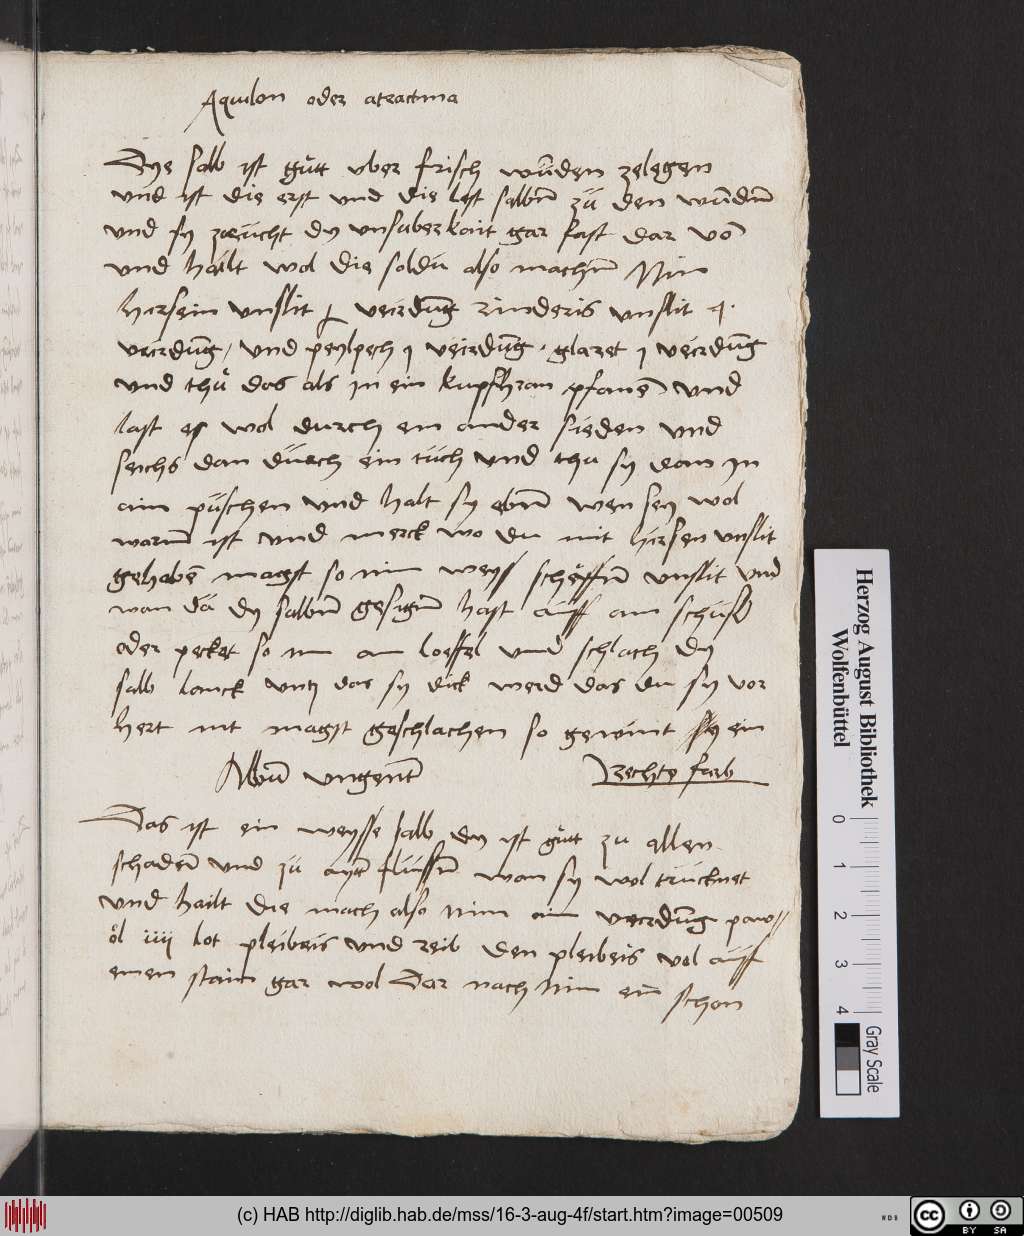 Aquilon oder atractiua
Dye salb ist gůtt vber frisch wŭnden zelegen
vnd ist die erst vnd die lest salbn̄ zŭ den wŭndn̄
vnd sy zeŭcht dy vnsuberkait gar fast dar vō
vnd hailt wol die soldu also machn̄ Nim
hirsein vnslit j veirdŭng rinderis vnslit j
veirdŭng / vnd peylpech j veirdŭng · glaret j veirdŭng
vnd thů das als in ein kupfhran pfanē vnd
last es wol durch ein ander sieden vnd
seichs dan dŭrch ein tŭch vnd thu sy dan in
ain pŭschen vnd halt sy ebn̄ wen sey wol
warm̄ ist vnd merck wo du mit hirsen vnslit
gehabē magst so nim weys schäffn̄ vnslit vnd
wan dŭ dy salbn̄ gesign̄ hast aŭff ain schŭsl
oder pecket so nim ain loeffel vnnd schlach dy
salb lanck vntz das sy dick werd das du sy vor
hert nit magst geschlachen so gewint sy ein
Albŭ vngent̄ Rechte farb
Das ist ein weysse salb dy ist gůtt zu allen
schadn̄ vnd zŭ aytr̄ flŭssn̄ wan sy wol trŭcknet
vnd hailt die mach also nim ain veirdŭng paw//
öl iiij lot pleibeis vnd reib den pleibeis vol aŭff
einen stain gar wol Dar nach Nim ein schon
Herzog August Bibliothek
Wolfenbüttel
0 1 2 3 4
Gray Scale
(c) HAB http://diglib.hab.de/mss/16-3-aug-4f/start.htm?image=00509
WDB
cc BY SA